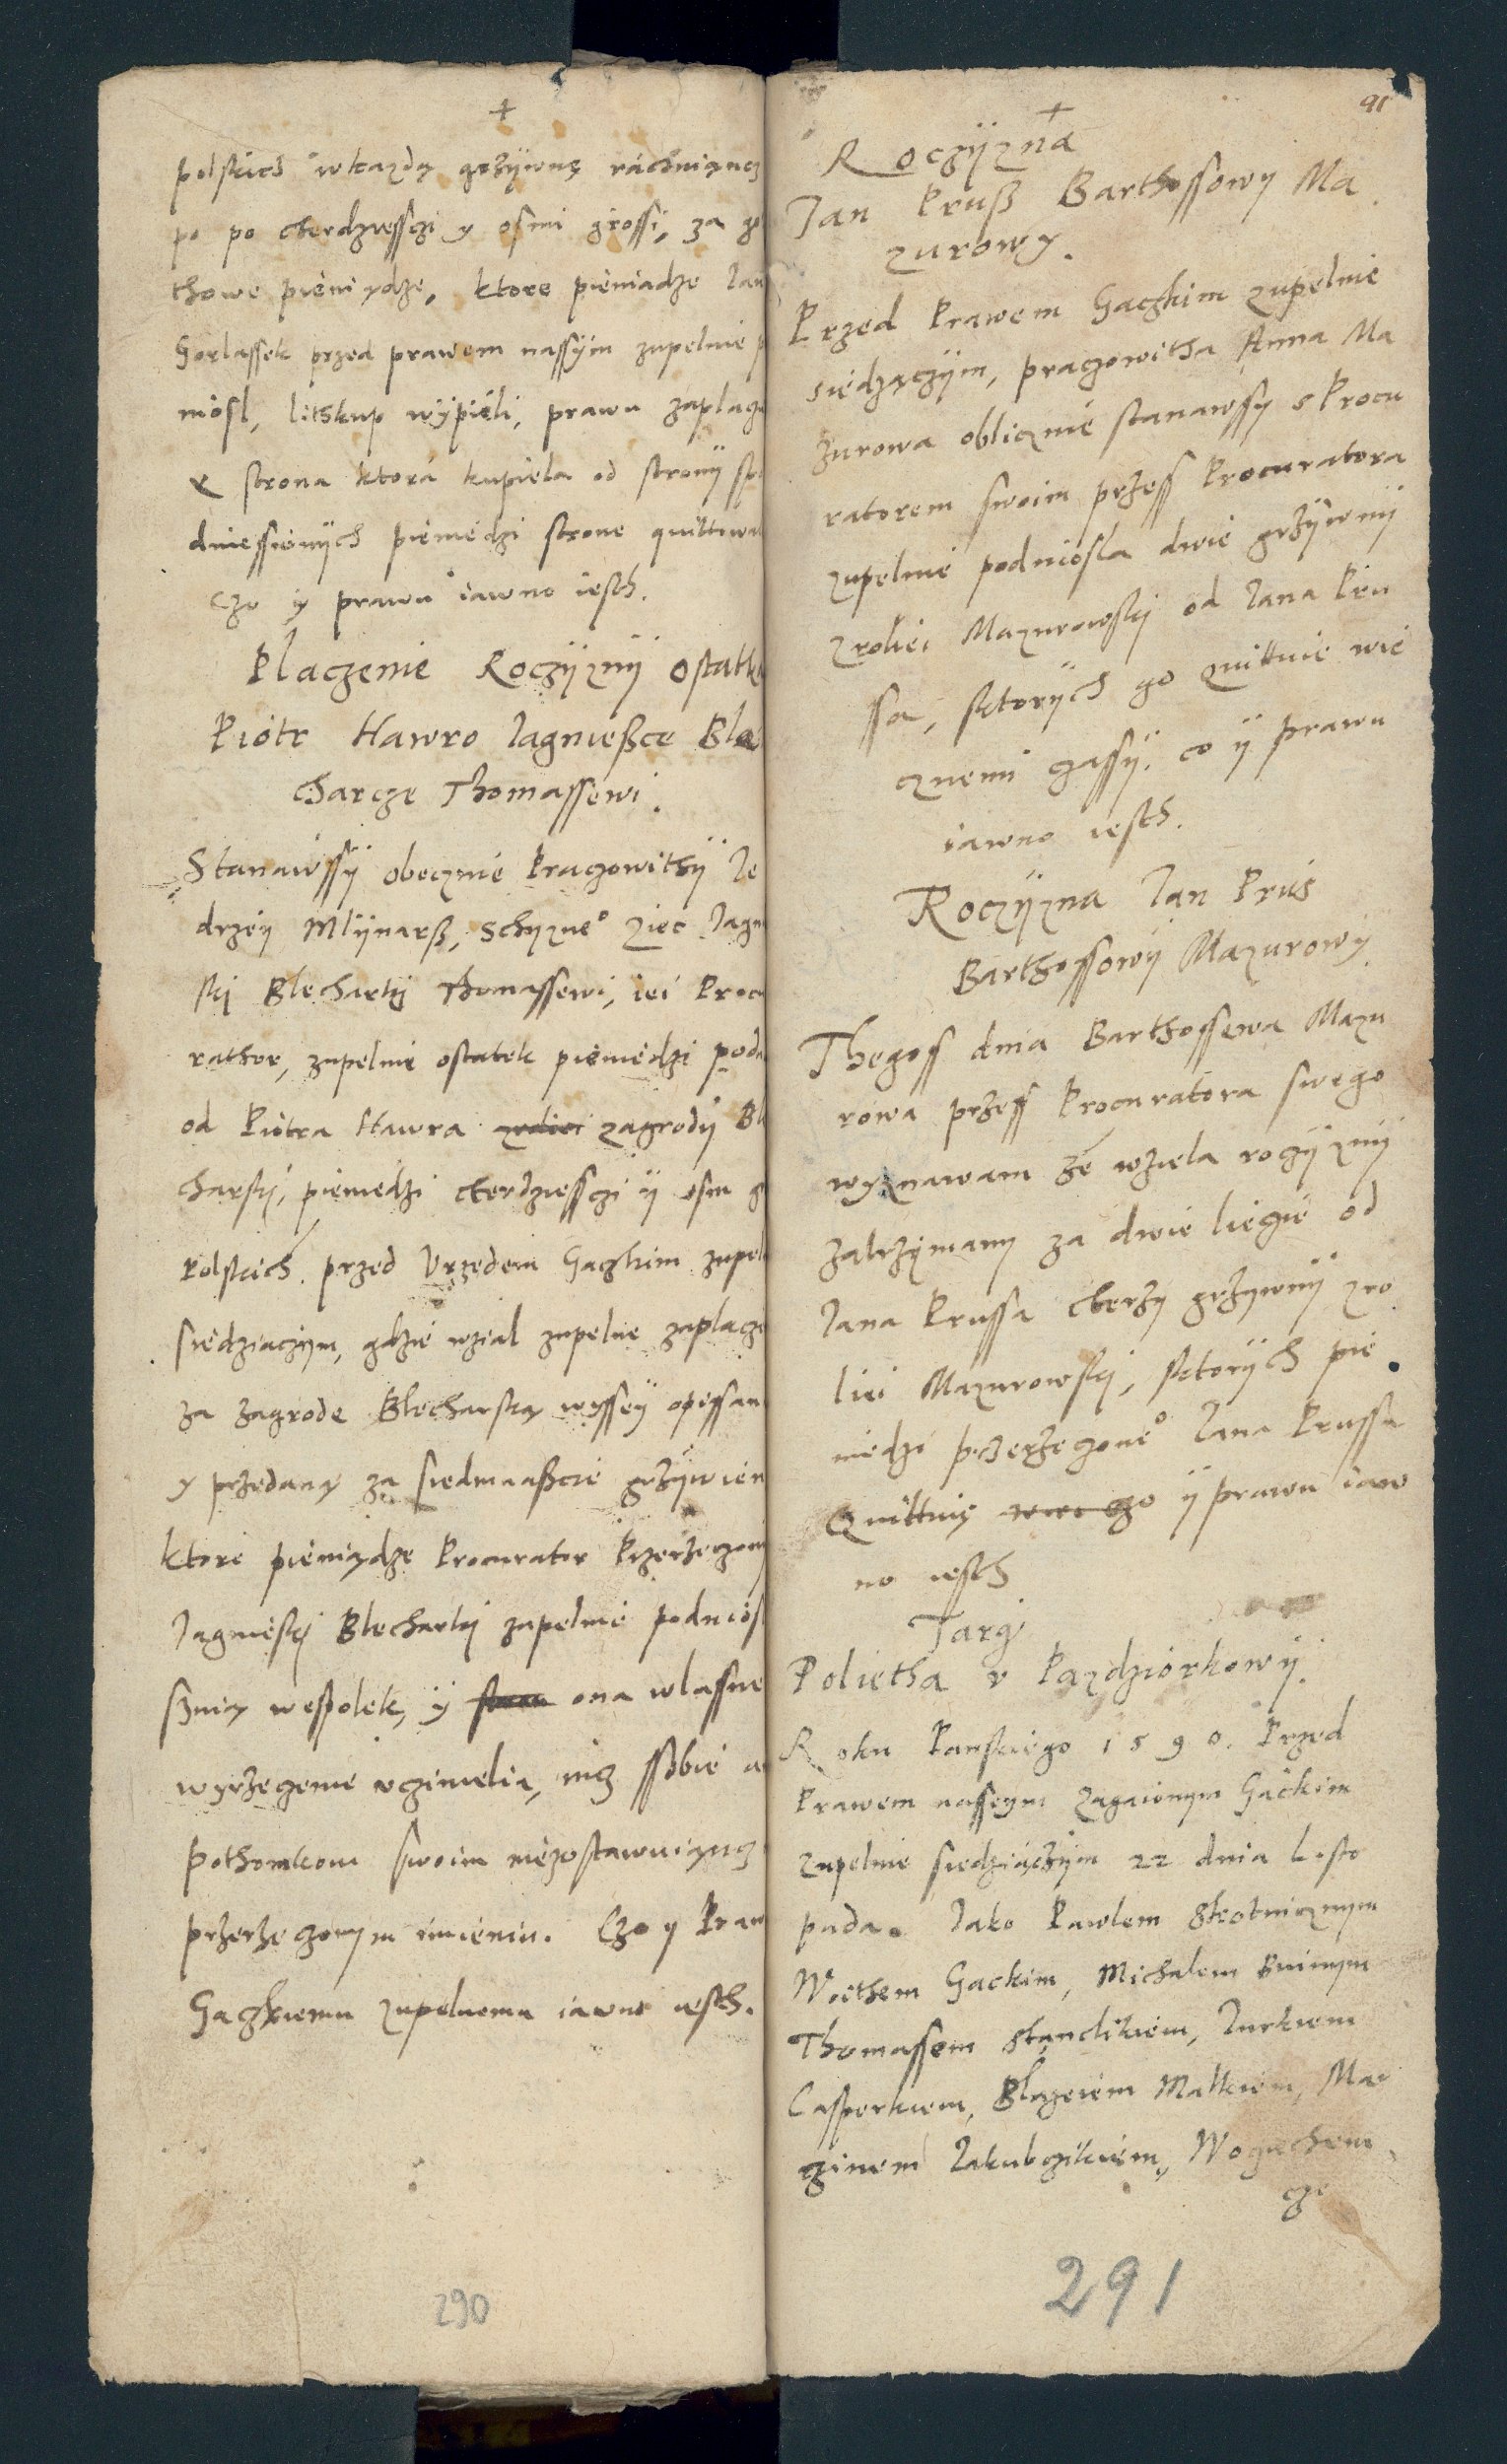 +
polskich w kazdą grzÿwnę rachuiąncz
po po cterdziesszi y osmi grossi, za go
thowe pieniądze, ktore pieniadze Jan
Gorlassek przed prawem nassÿm zupelnie p
niosl, lithkup wÿpieli, prawu zaplaczi
strona ktora kupiela od stronÿ
dniessionÿch pieniedzi strone quittowa
Czo ÿ prawu iawno iesth.
Placzenie Roczÿznÿ ostatk
Piotr Hawro Jagnießce Ble
charcze Thomassewi.
Stanawssÿ obecznie Praczowithÿ Je
drzeÿ Mlÿnarß, Schyzne° Ziec Jagn
ski Blecharkÿ Thomassewi, iei Procu
rathor, zupelnie ostatek pieniedzi poda
od Piotra Hawra zagrodÿ Bl
charskÿ, pieniedzi cterdziessczi ÿ osm g
Polskich, przed Urzedem Gaczkim zupel
siedziaczÿm, gdzie wzial zupelne zaplaczi
za zagrode Blecharską wyssey opissan
y przedaną za siedmnaßcie grzÿwien
ktore pieniądze Procurator Przerzeczonÿ
Jagnieski Blecharkÿ zupelnie podniosl
snią wespolek, ÿ ona wlasne
wyrzeczenie vczinielia, nicz ssobie a
pothomkom swoim niezostawuiąncz
przerzeczonym imieniu. Czo y Praw
Gaczkiemu zupelnemu iawno iesth.
290
91
+
Roczÿzna
Jan Pruß Barthossowy Ma
zurowy.
Przed Prawem Gaczkim zupelnie
siedzączÿm, praczowitha Anna Ma
zurowa oblicznie stanawssy s Procu
ratorem swoim przess Procuratora
zupelnie podniosla dwie grzÿwnÿ
zroliei Mazurowskÿ od Jana Pru
ssa, ktorÿch go quittuie wie
cznemi czassÿ. co ÿ prawu
iawno iesth.
Roczÿzna Jan Prus
Barthossowÿ Mazurowÿ
Thegoss dnia Barthossewa Mazu
rowa przess Procuratora swego
wyznawam ze wziela roczÿznÿ
zatrzÿmany za dwie liecie od
Jana Prussa cterzy grzywnÿ zro
liei Mazurowskÿ, ktorÿch pie
niedzi przerzeczone° Jana Prussa
Quittuię czo ÿ prawu iaw
no iesth
Targ
Polietha v Pazdziorkowÿ.
Roku Panskiego 1590. Przed
Prawem nasseym zagaionym Gackim
zupelnie siedziączÿm 22 dnia Listo
pada. Jako Pawlem Skotnicznym
Woithem Gackim, Michalem Buinym
Thomassem Stanclikiem, Jurkiem
Casperkiem, Blazeiem Malkiem, Mar
cinem Jakubczikiem, Wogiechem
cze
291